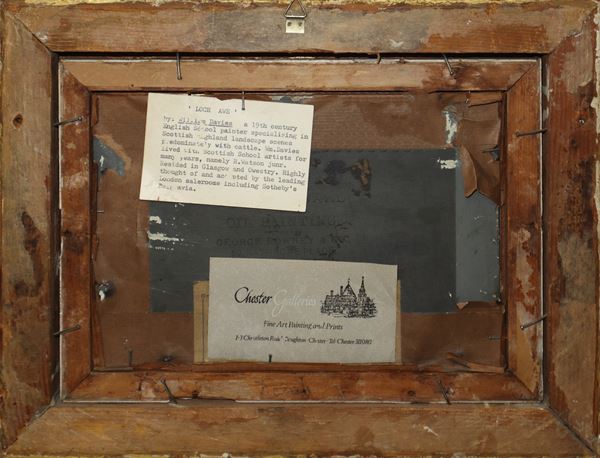 ' LOCH AWE '
by. William Davies a 19th century
English School painter specialising in
Scottish Highland landscape scenes
predominately with cattle. Wm.Davies
lived with Scottish School artists for
many years, namely R.Watson junr.
Resided in Glasgow and Oswestry. Highly
thought of and accepted by the leading
London salerooms including Sotheby's
OIL PAINTING
GEORGE ROWNEY & CO
Chester Galleries
Fine Art Painting and Prints
1-3 Christleton Road Boughton Chester Tel Chester